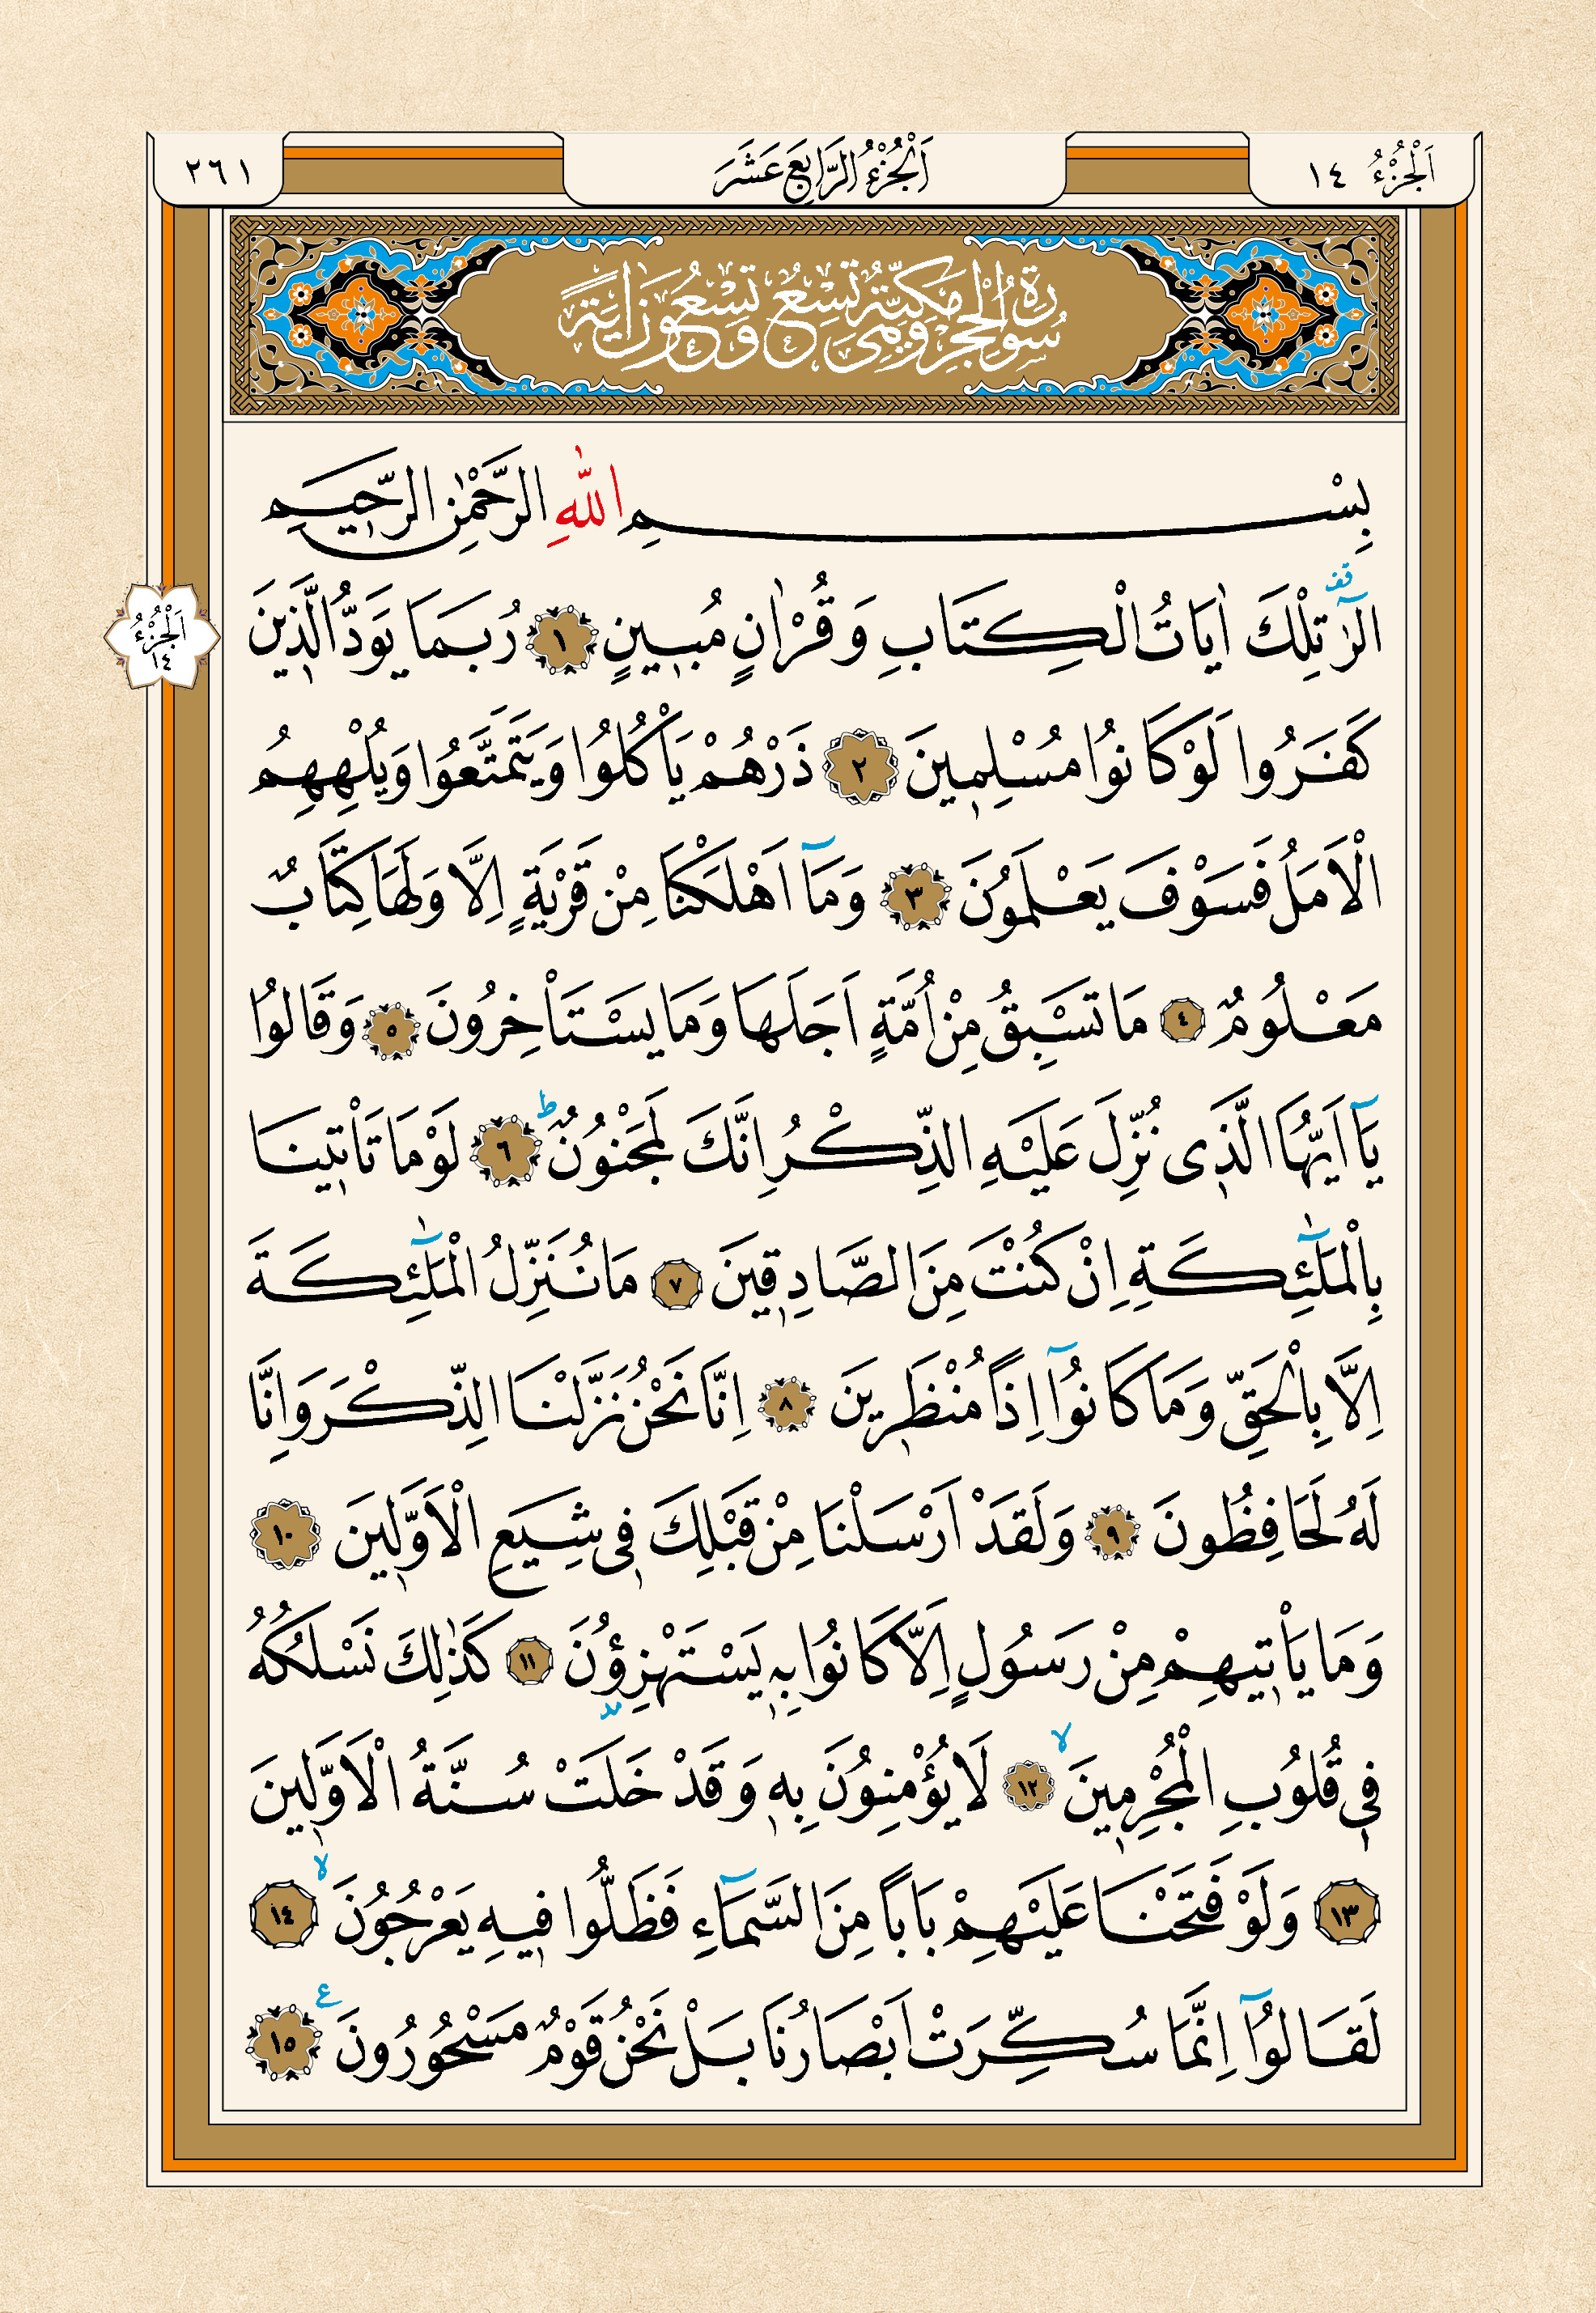 اَلْجُزْءُ ١٤
اَلْجُزْءُ الرَّابِعَ عَشَرَ
٢٦١
سُورَةُ الْحِجْرِ مَكِّيَّةٌ وَهِىَ تِسْعٌ وَتِسْعُونَ اٰيَةً
بِسْمِ اللّٰهِ الرَّحْمٰنِ الرَّحٖيمِ
الٓرٰ قف تِلْكَ اٰيَاتُ الْكِتَابِ وَقُرْاٰنٍ مُبٖينٍ ١ رُبَمَا يَوَدُّ الَّذٖينَ
اَلْجُزْءُ ١٤
كَفَرُوا لَوْ كَانُوا مُسْلِمٖينَ ٢ ذَرْهُمْ يَأْكُلُوا وَيَتَمَتَّعُوا وَيُلْهِهِمُ
الْاَمَلُ فَسَوْفَ يَعْلَمُونَ ٣ وَمَٓا اَهْلَكْنَا مِنْ قَرْيَةٍ اِلَّا وَلَهَا كِتَابٌ
مَعْلُومٌ ٤ مَا تَسْبِقُ مِنْ اُمَّةٍ اَجَلَهَا وَمَا يَسْتَأْخِرُونَ ٥ وَقَالُوا
يَٓا اَيُّهَا الَّذٖى نُزِّلَ عَلَيْهِ الذِّكْرُ اِنَّكَ لَمَجْنُونٌ ط ٦ لَوْ مَا تَأْتٖينَا
بِالْمَلٰٓئِكَةِ اِنْ كُنْتَ مِنَ الصَّادِقٖينَ ٧ مَا نُنَزِّلُ الْمَلٰٓئِكَةَ
اِلَّا بِالْحَقِّ وَمَا كَانُٓوا اِذًا مُنْظَرٖينَ ٨ اِنَّا نَحْنُ نَزَّلْنَا الذِّكْرَ وَاِنَّا
لَهُ لَحَافِظُونَ ٩ وَلَقَدْ اَرْسَلْنَا مِنْ قَبْلِكَ فٖى شِيَعِ الْاَوَّلٖينَ ١٠
وَمَا يَأْتٖيهِمْ مِنْ رَسُولٍ اِلَّا كَانُوا بِهٖ يَسْتَهْزِؤُنَ ١١ كَذٰلِكَ نَسْلُكُهُ
فٖى قُلُوبِ الْمُجْرِمٖينَ لا ١٢ لَا يُؤْمِنُونَ بِهٖ وَقَدْ خَلَتْ سُنَّةُ الْاَوَّلٖينَ
١٣ وَلَوْ فَتَحْنَا عَلَيْهِمْ بَابًا مِنَ السَّمَٓاءِ فَظَلُّوا فٖيهِ يَعْرُجُونَ لا ١٤
لَقَالُٓوا اِنَّمَا سُكِّرَتْ اَبْصَارُنَا بَلْ نَحْنُ قَوْمٌ مَسْحُورُونَ ع ١٥